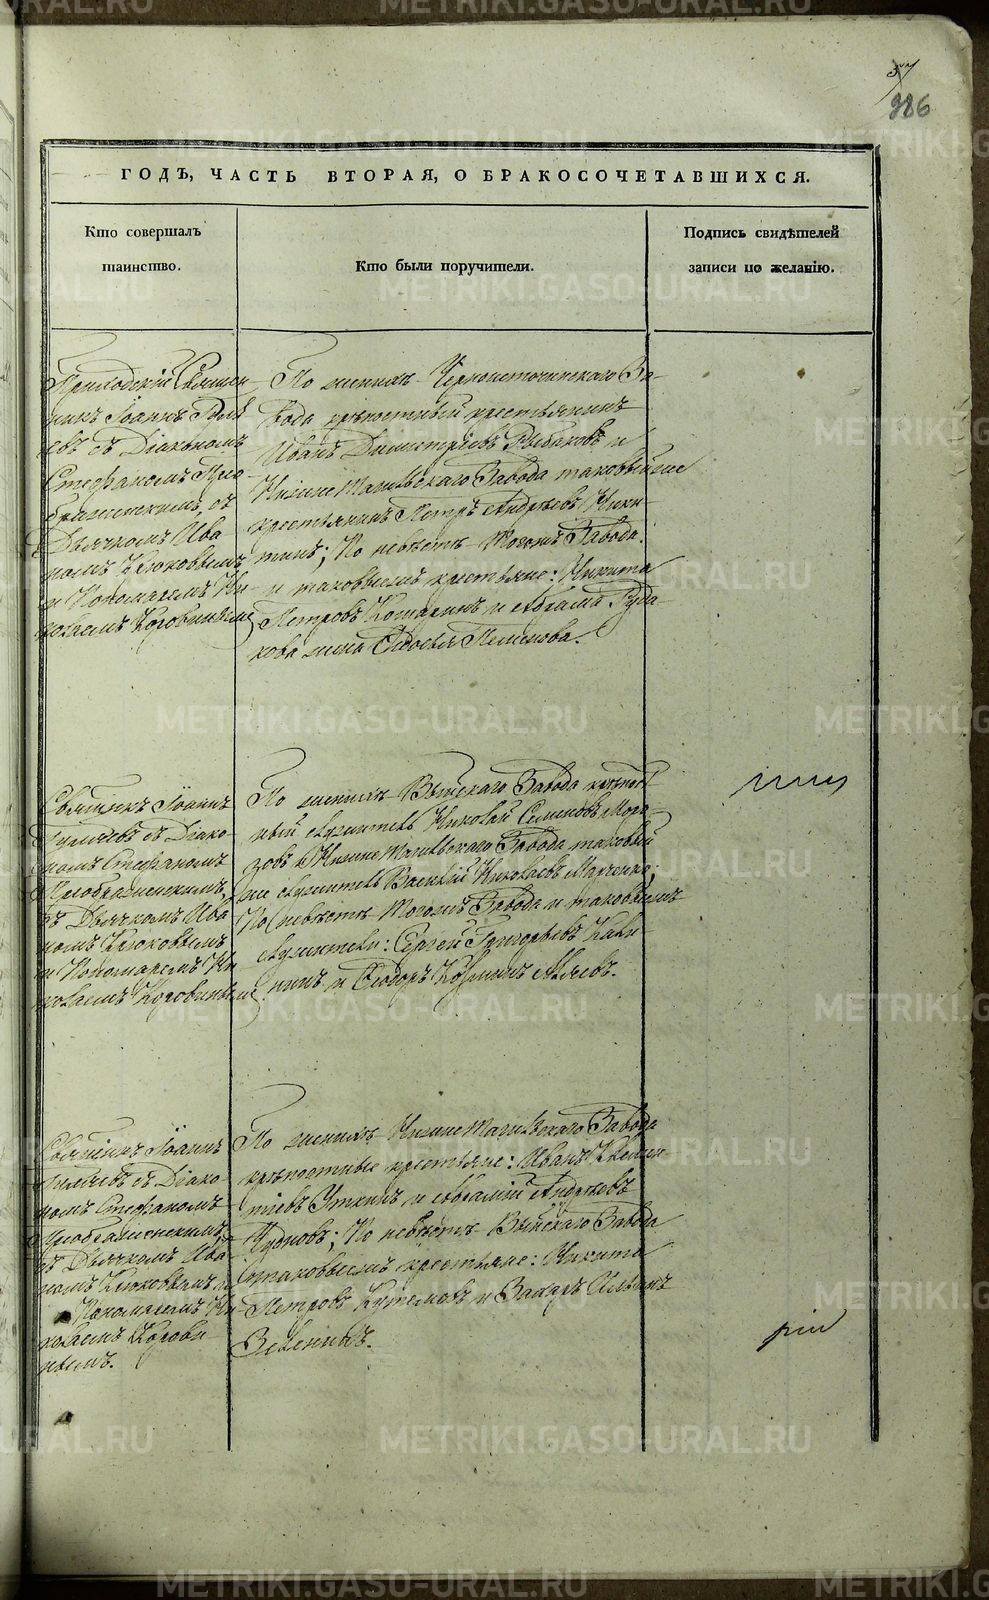 986
ГОДЪ, ЧАСТЬ ВТОРАЯ, О БРАКОСОЧЕТАВШИХСЯ.
Кто совершалъ
таинство.
Кто были поручители.
Подпись свидѣтелей
записи по желанію.
Приходскій Священ-
никъ Іоаннъ
евъ съ Діакономъ
Стефаномъ Прео-
браженскимъ, съ
Дьячкомъ Ива
номъ Клюковымъ
и Пономаремъ Ни-
колаемъ Коровинымъ
По женихѣ Черноисточинскаго За-
вода крѣпостный крестьянинъ
Иванъ Димитріевъ Рыбаковъ и
Нижне Тагильскаго Завода таковый же
крестьянинъ Петръ Андреевъ Ники
тинъ; По невѣстѣ Тогожъ Завода
и таковыежъ крестьяне: Никита
Петровъ и Абрама Руда-
кова жена Федосья
Священникъ Іоаннъ
съ Діако-
номъ Стефаномъ
Преображенскимъ,
съ Дьячкомъ Ива
номъ Клюковымъ
и Пономаремъ Ни-
колаемъ Коровинымъ
По женихѣ Выйскаго Завода крѣпост-
ный служитель Николай Семеновъ Моро-
зовъ и Нижне Тагильскаго Завода таковый
же служитель Василій Николаевъ
По невѣстѣ Тогожъ Завода и таковыежъ
служители: Сергей Григорьевъ
и Федоръ Козминъ
Священникъ Іоаннъ
съ Діако-
номъ Стефаномъ
Преображенскимъ,
съ Дьячкомъ Ива
номъ Клюковымъ и
Пономаремъ Ни-
колаемъ Корови-
нымъ.
По женихѣ Нижне Тагильскаго Завода
крѣпостные крестьяне: Иванъ Клемен
тіевъ Уткинъ и Андреевъ
Чудновъ; По невѣстѣ Выйскаго Завода
таковыежъ крестьяне: Никита
Петровъ и Захаръ Ильинъ
Зеленинъ.
METRIKI.GASO-URAL.RU